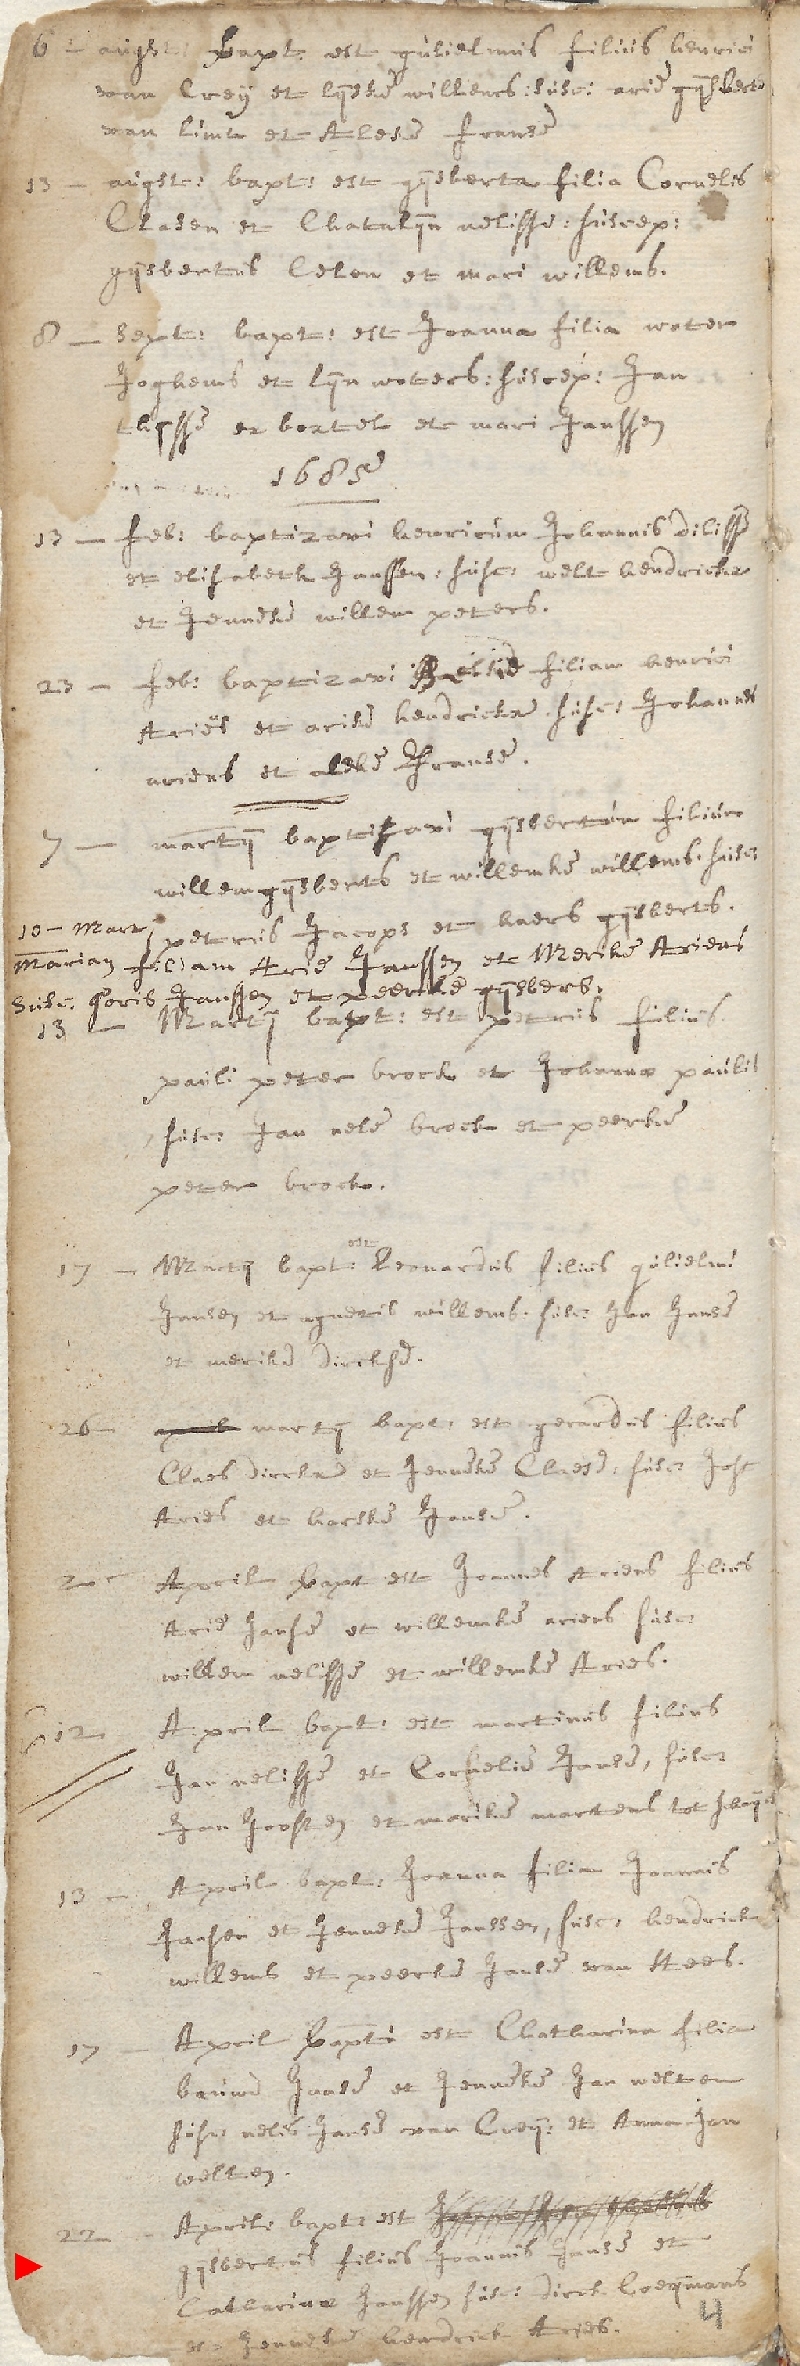 6 - augst: bapt: est gulielmus filius henrici
van Creij et lijske willems: susc: arie gijsberts
van et Aleke franse
13 - augst: bapt: est gijsberta filia Cornelis
Clasen et Chatalijn nelisse: suscep:
gijsbertus Celen et mari willems.
8 - Sept: bapt: est Joanna filia woter
Jochems et lijn woters: suscep: Jan
et mari Janssen
1685
13 - feb: baptizavi henricum Johannis dilisse
et elisabeth Janssen: susc: welt hendrickx
et Jenneke willem peters.
23 - feb: baptizavi filiam henrici
Aries et arike hendrickx susc: Johannes
ariens et aleke Franse.
7 - martij baptisavi gijsbertum filium
willem gijsberts et willemke willems. susc:
petrus Jacops et haers gijsberts.
10 - Mart
Marian filiam Arie Janssen et Merike Ariens
Susc. Goris Janssen et peerke gijsbers.
13 - Martij bapt: est petrus filius
pauli peter brock et Johanna paulis
susc: Jan nele brock et peerke
peter brock.
17 - Martij bapt: est Leonardus filius gulielmi
Jansen et agnetis willems. susc: Jan Janse
et merike dirckse.
26 - martij bapt: est gerardus filius
Claes dirckx et Jenneke Claese: susc: Jost
Aries et harske Janse.
2 - April bapt est Joannes Ariens filius
Arie Janse et willemke ariens susc:
willem nelisse et willemke Aries.
12 April bapt: est martinus filius
Jan nelisse et Cornelie Janse, susc:
Jan Joosten et marike martens tot
13 - April bapt: Joanna filia Joannis
Jansen et Jenneke Janssen, susc: hendrick
willems et peerke Janse van Hees.
17 - April bapta est Chatharina filia
bauwe Janse et Jenneke Jan welten
susc: nelis Janse van Creij: et Anna Jan
welten.
22 - April: bapt: est
gijsbertus filius Joannis Janse et
Catharina Janssen susc: dirck Coeijmans
et Jenneke hendrick Aries.
4